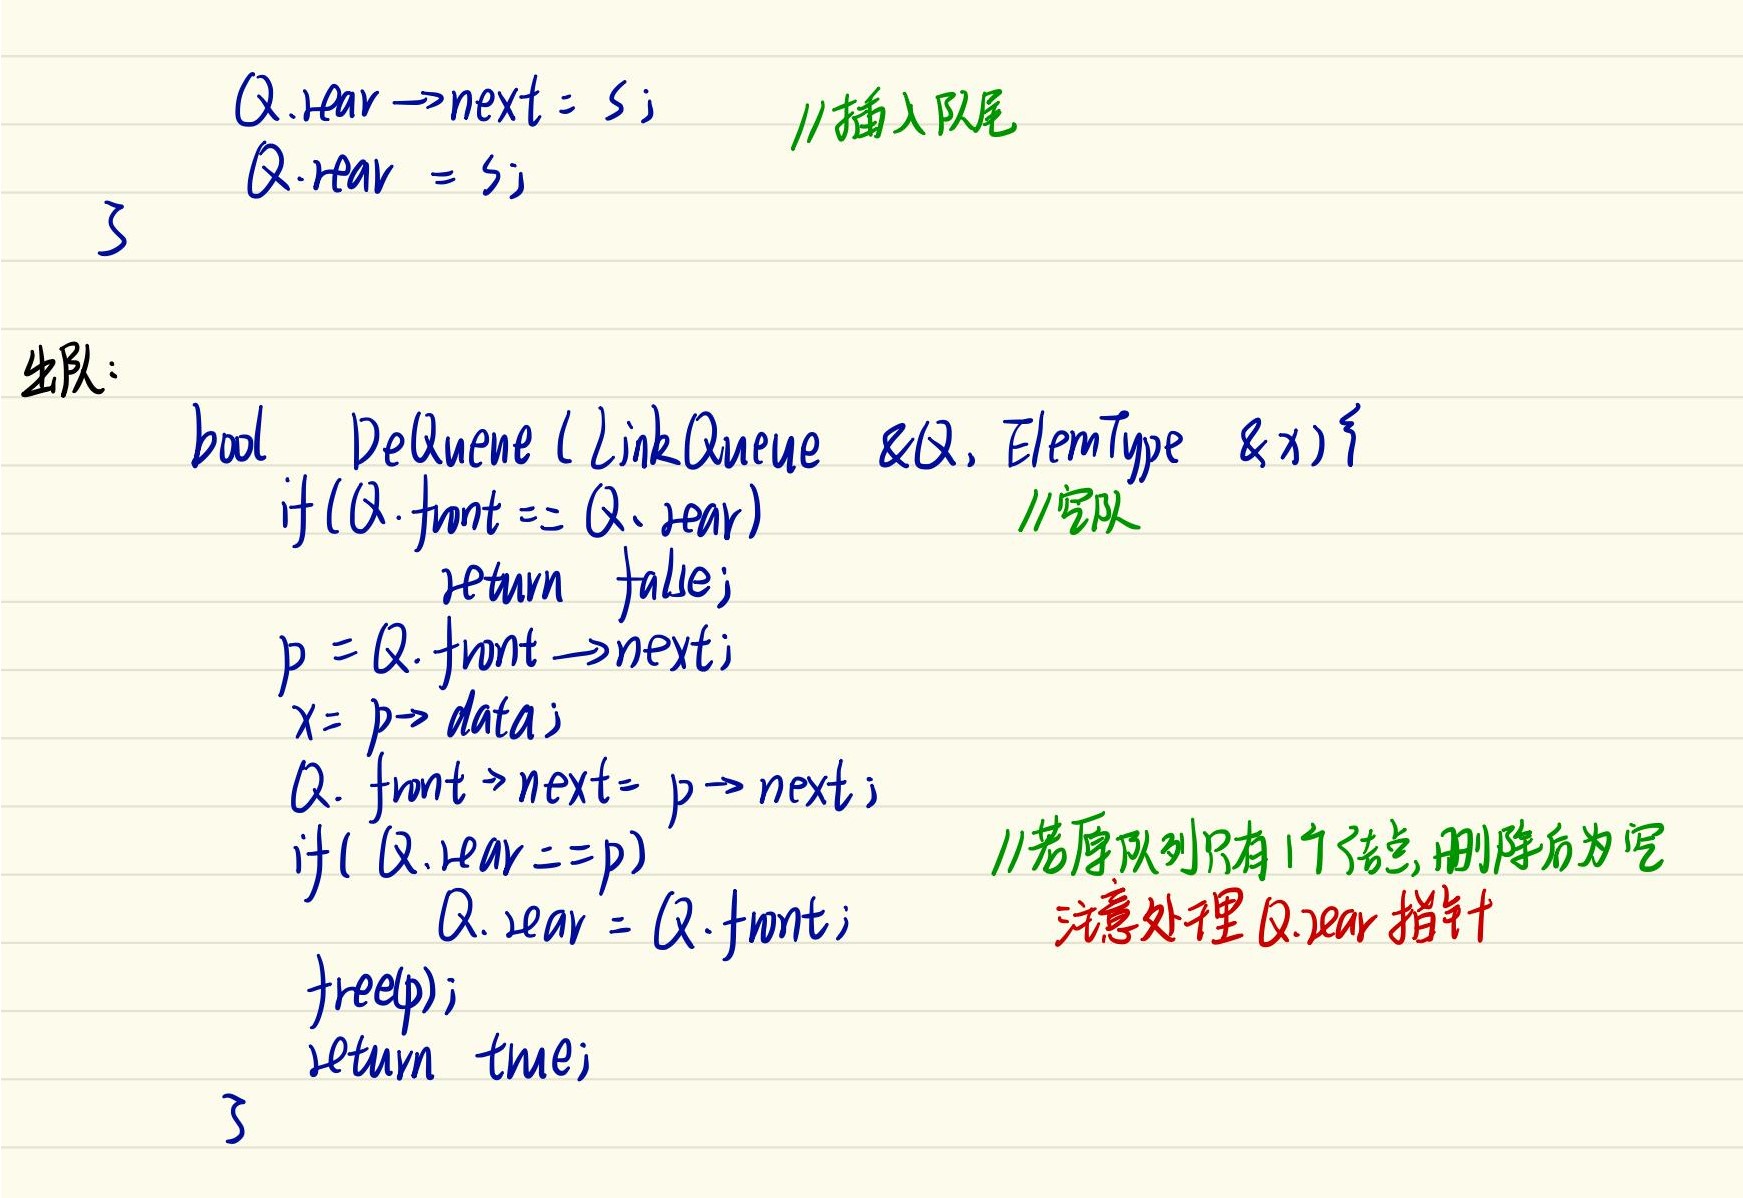 Q.rear→next = s; //插入队尾
Q.rear = s;
}
出队:
bool DeQueue (LinkQueue &Q, ElemType &x) {
if (Q.front == Q.rear) //空队
return false;
p = Q.front→next;
x = p→data;
Q.front→next = p→next;
if (Q.rear == p) //若原队列只有1个结点,删除后为空
Q.rear = Q.front; 注意处理Q.rear指针
free(p);
return true;
}